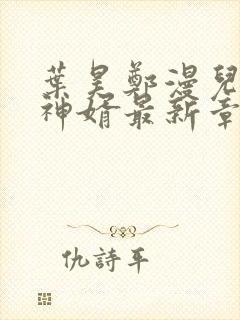 葉昊鄭漫兒
神婿最新章
仇詩平